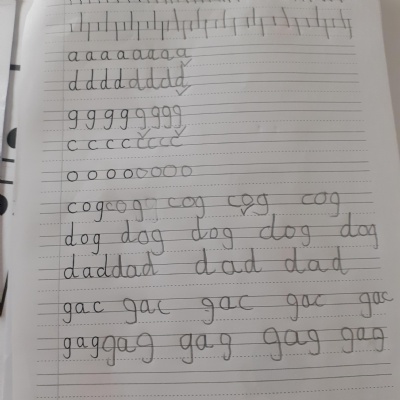 a a a a a a a a
d d d d d d d d
g g g g g g g g
c c c c c c c c
o o o o o o o o
cog cog cog cog cog
dog dog dog dog dog
dad dad dad dad
gac gac gac gac gac
gag gag gag gag gag